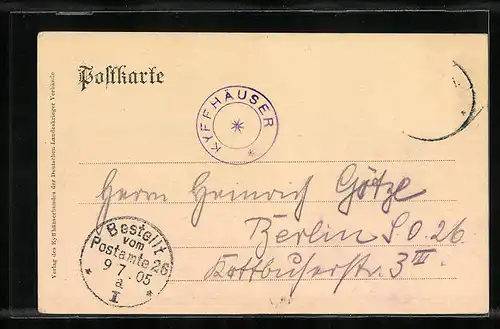 Postkarte
KYFFHÄUSER
Herrn Heinrich Götze
Berlin S O. 26.
Kottbuserstr. 3 III
Bestellt
vom
Postamte 26
9 7. 05
a
I
Verlag des Kyffhäuserbundes der Deutschen Landeskrieger Verbände